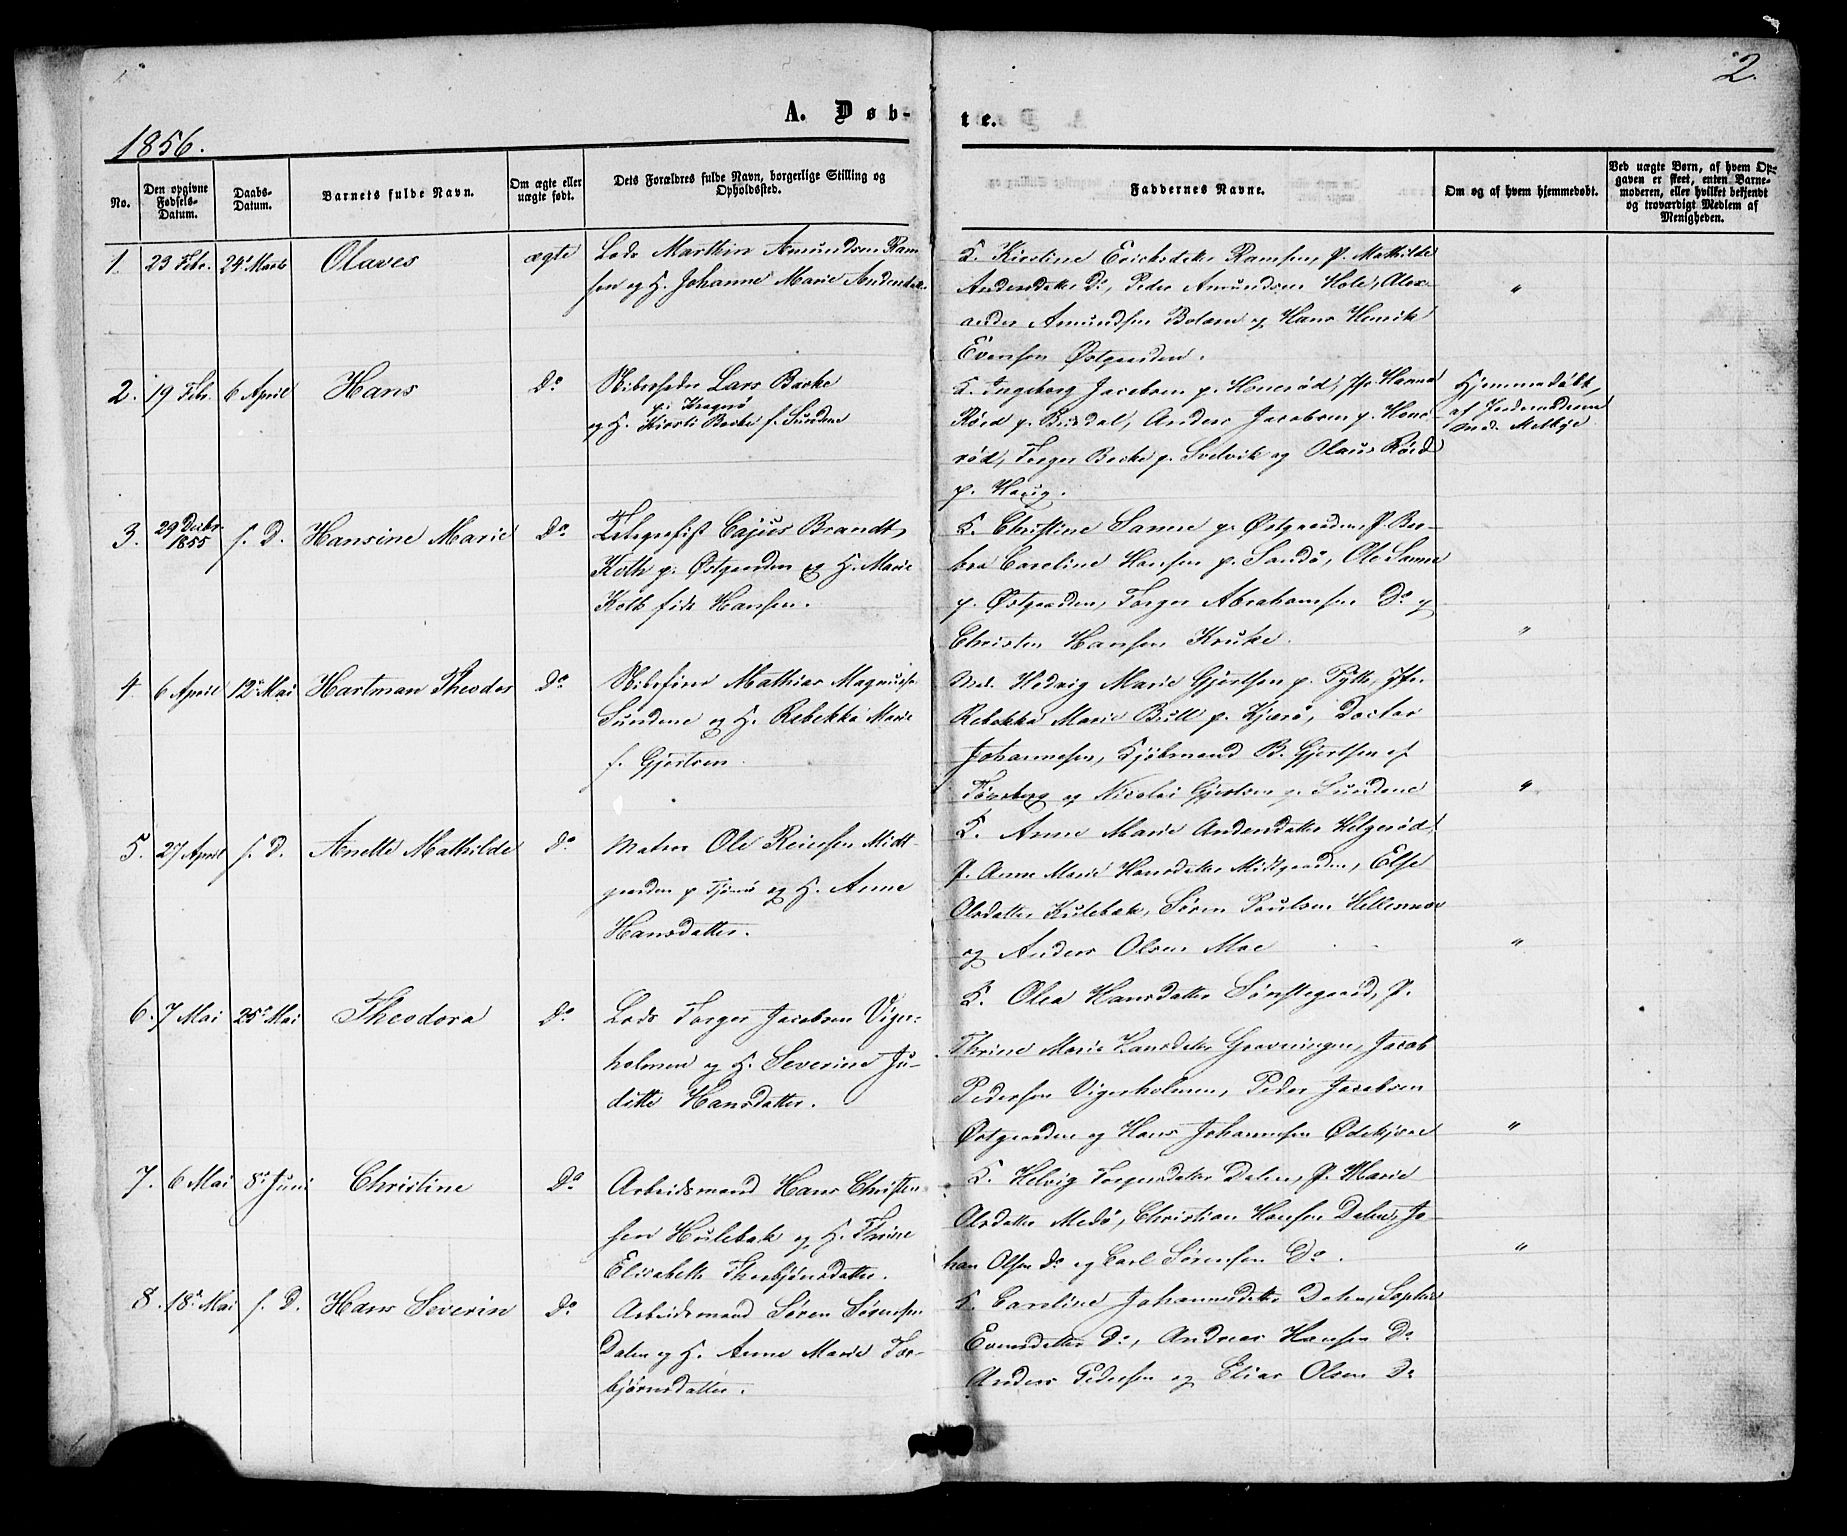 2.
A. Døb-
te.
1856.
No.
Den opgivne Fødsels-Datum.
Daabs-Datum.
Barnets fulde Navn.
Om ægte eller uægte født.
Dets Forældres fulde Navn, borgerlige Stilling og Opholdssted.
Faddernes Navne.
Om og af hvem hjemmedøbt.
Ved uægte Børn, af hvem Opgaven er skeet, enten Barnemoderen, eller hvilket bekjendt og troværdigt Medlem af Menigheden.
1. 23 Febr. 24de Marts Olaves ægte
Lods Marthin Amundsen Ram-
sen og H. Johanne Marie Andersdatter
K. Kirstine Ericksdatter Ramsen, P. Mathilde
Andersdatter Do, Peder Amundsen Hole, Alex-
ander Amundsen Bolærn og Hans Henrik
Evensen Østgaarden.
"
2. 19 Febr. 6 April Hans Do
Skibsfører Lars Bache
p. Kragerø
og H. Kirsti Bache f. Sundene
K. Ingeborg Jacobsen p. Honerød, Jfr Hanna
Röed p. Budal, Anders Jacobsen p. Hone-
rød, Torger Bache p. Svelvik og Olaus Röed
p. Haug.
Hjemmedöbt,
af Jordemoderen
Mad. Melbye
3. 29 Decbr. 1855 s. D. Hansine Marie Do
Telegrafist Cajus Brandt
Koth p. Østgaarden og H. Marie
Koth föd Hansen.
K. Christine Sanne p. Østgaarden, P. Bar-
bra Caroline Hansen p. Sandö, Ole Sanne
p. Østgaarden, Torger Abrahamsen Do og
Christen Hansen Kruke.
"
4 6 April 12te Mai Hartman Theodor Do
Skibsfører Mathias Magnus
Sundene og H. Rebekka Marie
f. Gjertsen.
Mad. Hedvig Marie Gjertsen p. Pytte, Jfr.
Rebekka Marie Bull p. Kjærø, Doctor
Johannesen, Kjöbmand B. Gjertsen af
Tönsberg og Nicolai Gjertsen p. Sundene
"
5. 27 April s. D. Anette Mathilde Do
Matros Ole Reiersen Midt-
gaarden p. Tjømø og H. Anne
Hansdatter.
K. Anne Marie Andersdatter Helgerød,
P. Anne Marie Hansdatter Midtgaarden, Else
Olsdatter Kulebak, Søren Paulsen Hellesmoe
og Anders Olsen Moe
"
6. 7 Mai 25de Mai Theodora Do
Lods Torger Jacobsen Viger-
holmen og H. Severine Ju-
ditte Hansdatter.
K. Olea Hansdatter Sønstegaard, P.
Thrine Marie Hansdatter Grevningen, Jacob
Pedersen Vigerholmen, Peder Jacobsen
Østgaarden og Hans Johannesen Ødekjære
"
7. 6 Mai 8de Juni Christine Do
Arbeidsmand Hans Christen-
sen Hulebak og H. Thrine
Elisabeth Thorbjörnsdatter.
K. Helvig Torgersdatter Dalen, P. Marie
Olsdatter Medö, Christian Hansen Dalen, Jo-
han Olsen Do og Carl Sörensen Do.
"
8. 18de Mai s. D. Hans Severin Do
Arbeidsmand Søren Sørensen
Dalen og H. Anne Marie Tor-
bjørnsdatter.
K. Caroline Johannesdatter Dalen, Sophie
Evensdatter Do, Andreas Hansen Do
Anders Pedersen og Elias Olsen Do